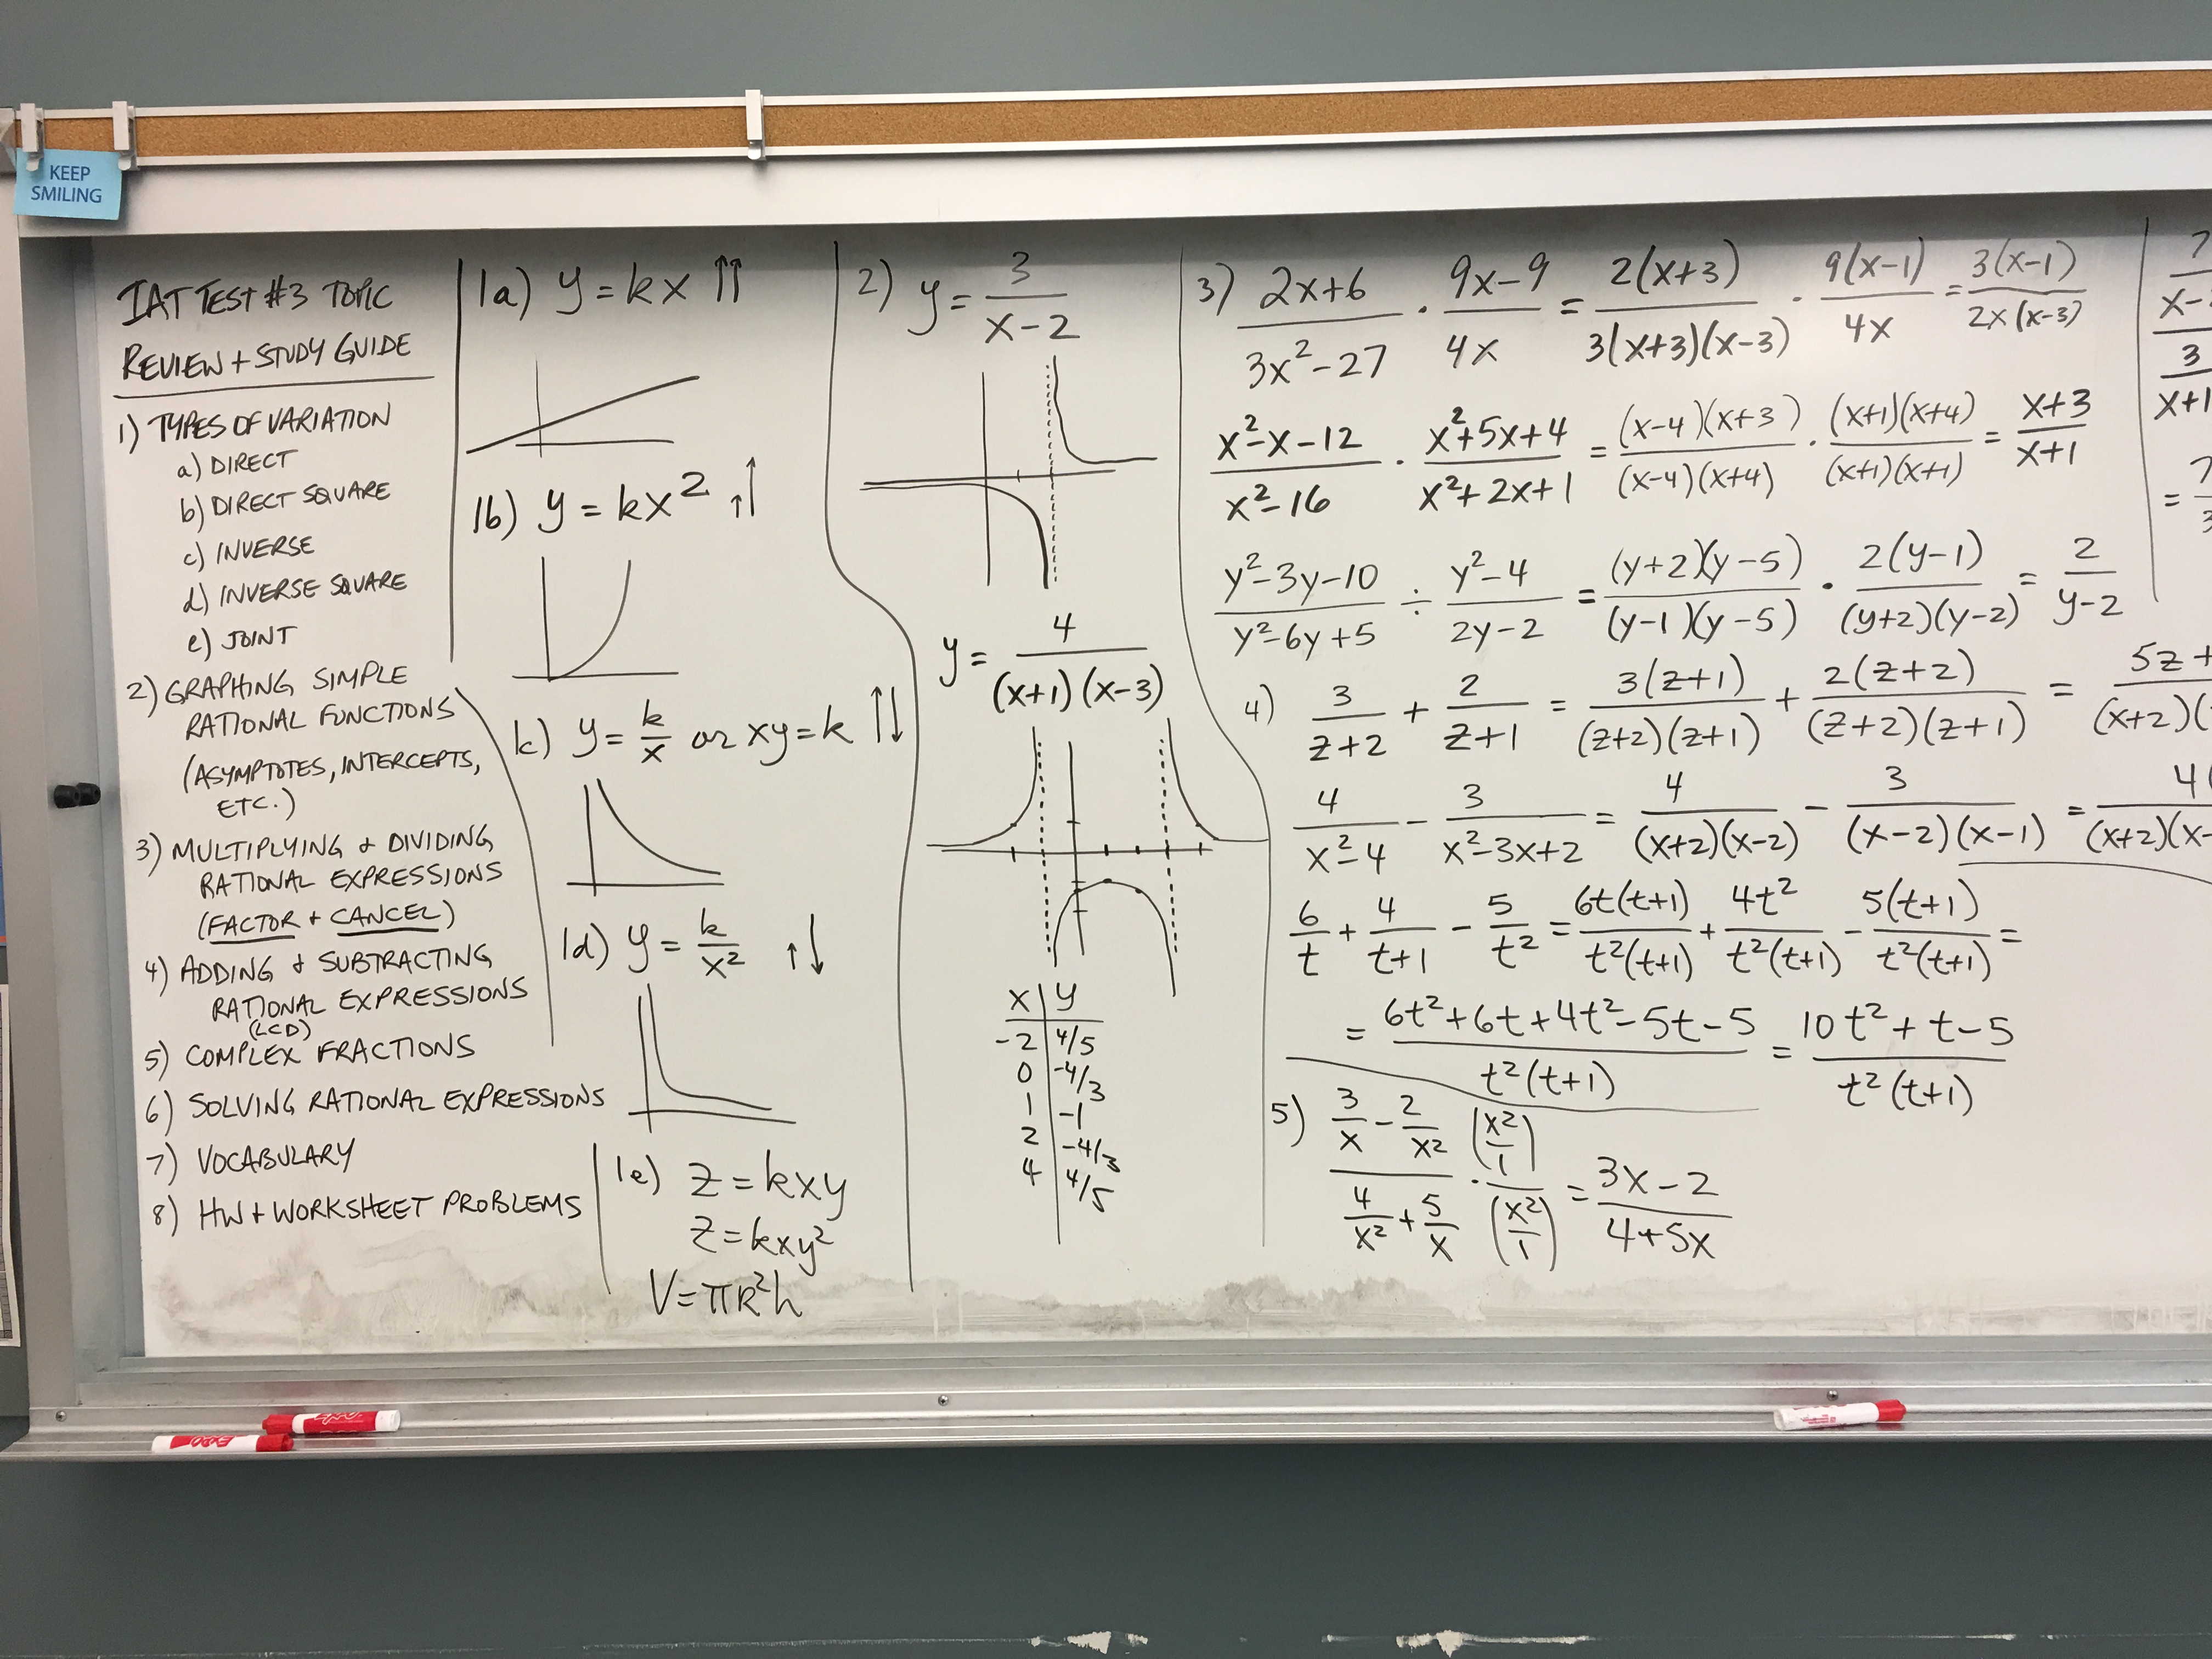 KEEP
SMILING
IAT TEST #3 TOPIC
REVIEW + STUDY GUIDE
1) TYPES OF VARIATION
a) DIRECT
b) DIRECT SQUARE
c) INVERSE
d) INVERSE SQUARE
e) JOINT
2) GRAPHING SIMPLE
RATIONAL FUNCTIONS
(ASYMPTOTES, INTERCEPTS,
ETC.)
3) MULTIPLYING + DIVIDING
RATIONAL EXPRESSIONS
(FACTOR + CANCEL)
4) ADDING + SUBTRACTING
RATIONAL EXPRESSIONS
(LCD)
5) COMPLEX FRACTIONS
6) SOLVING RATIONAL EXPRESSIONS
7) VOCABULARY
8) HW + WORKSHEET PROBLEMS
1a) y = kx ↑↑
1b) y = kx² ↑↑
1c) y = k/x or xy = k ↑↓
1d) y = k/x² ↑↓
1e) z = kxy
z = kxy²
V = πR²h
2) y = 3/(x-2)
y = 4/((x+1)(x-3))
x | y
-2 | 4/5
0 | -4/3
1 | -1
2 | -4/3
4 | 4/5
3) (2x+6)/(3x²-27) · (9x-9)/(4x) = 2(x+3)/(3(x+3)(x-3)) · 9(x-1)/(4x) = 3(x-1)/(2x(x-3))
(x²-x-12)/(x²-16) · (x²+5x+4)/(x²+2x+1) = (x-4)(x+3)/((x-4)(x+4)) · (x+1)(x+4)/((x+1)(x+1)) = (x+3)/(x+1)
(y²-3y-10)/(y²-6y+5) ÷ (y²-4)/(2y-2) = (y+2)(y-5)/((y-1)(y-5)) · 2(y-1)/((y+2)(y-2)) = 2/(y-2)
4) 3/(z+2) + 2/(z+1) = 3(z+1)/((z+2)(z+1)) + 2(z+2)/((z+2)(z+1)) = 5z+ / (x+2)(
4/(x²-4) - 3/(x²-3x+2) = 4/((x+2)(x-2)) - 3/((x-2)(x-1)) = 4( / (x+2)(x-
6/t + 4/(t+1) - 5/t² = 6t(t+1)/(t²(t+1)) + 4t²/(t²(t+1)) - 5(t+1)/(t²(t+1)) =
= (6t²+6t+4t²-5t-5)/(t²(t+1)) = (10t²+t-5)/(t²(t+1))
5) (3/x - 2/x²)/(4/x² + 5/x) · (x²/1)/(x²/1) = (3x-2)/(4+5x)
7
x-
3
x+1
= 7
3
EXPO